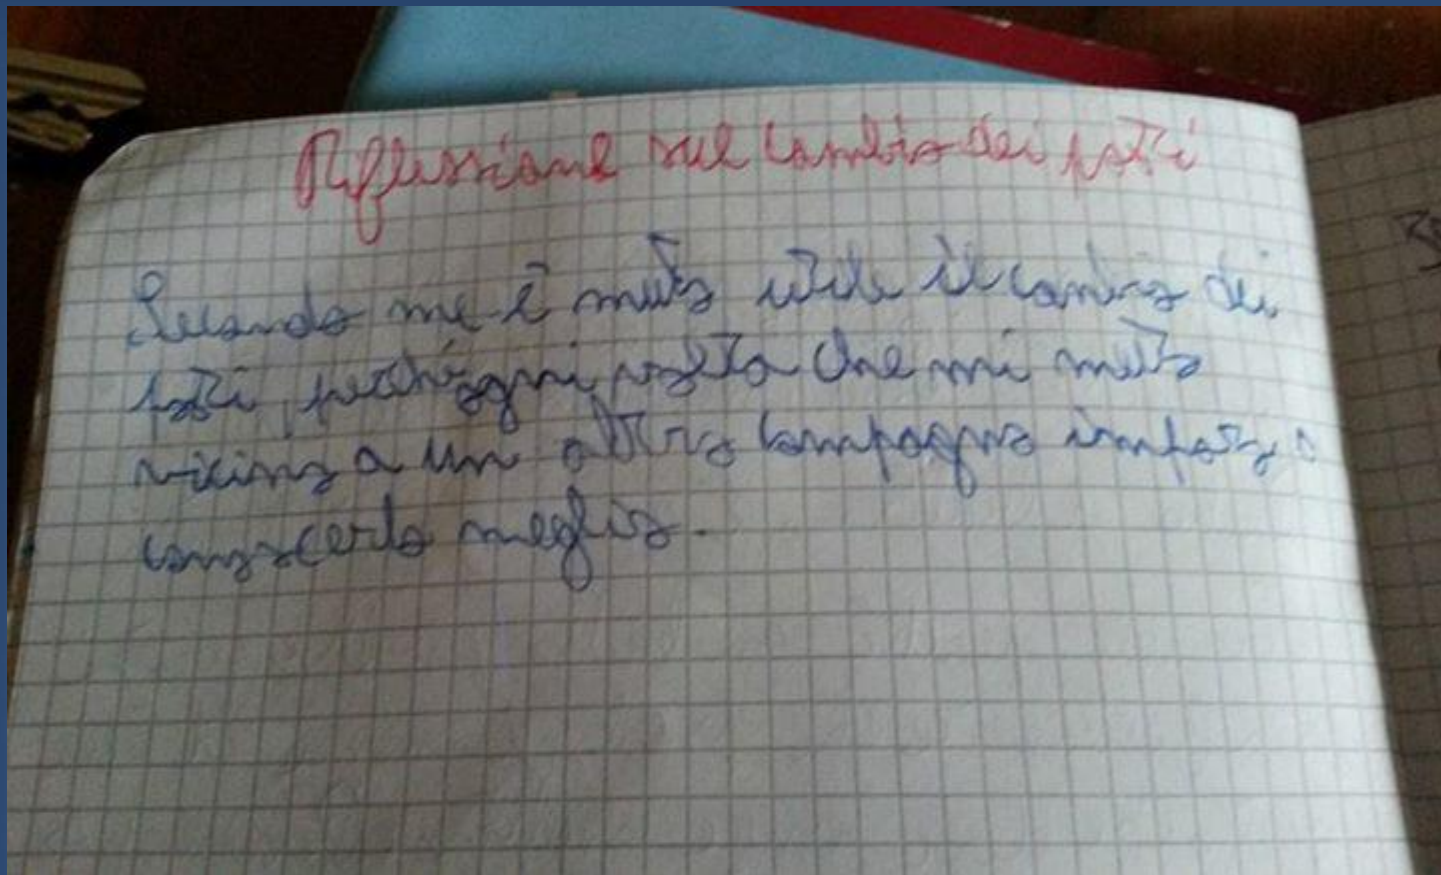 Riflessione sul cambio dei posti
Secondo me è molto utile il cambio dei
posti, perché ogni volta che mi metto
vicino a un altro compagno imparo a
conoscerlo meglio.